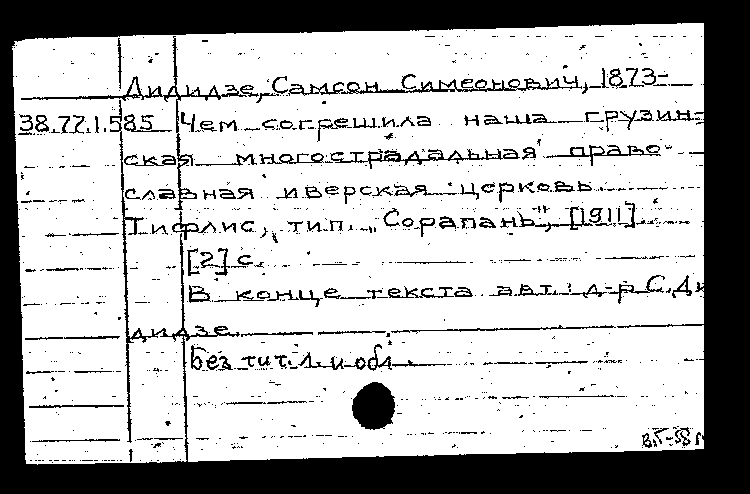 Дидидзе, Самсон Симеонович, 1873-
38.77.1.585 Чем согрешила наша грузин-
ская многострадальная право-
славная иверская церковь.
Тифлис, тип. „Сорапань", [1911].
[2] с.
В конце текста авт.: д-р С. Ди
дидзе.
Без тит. л. и обл.